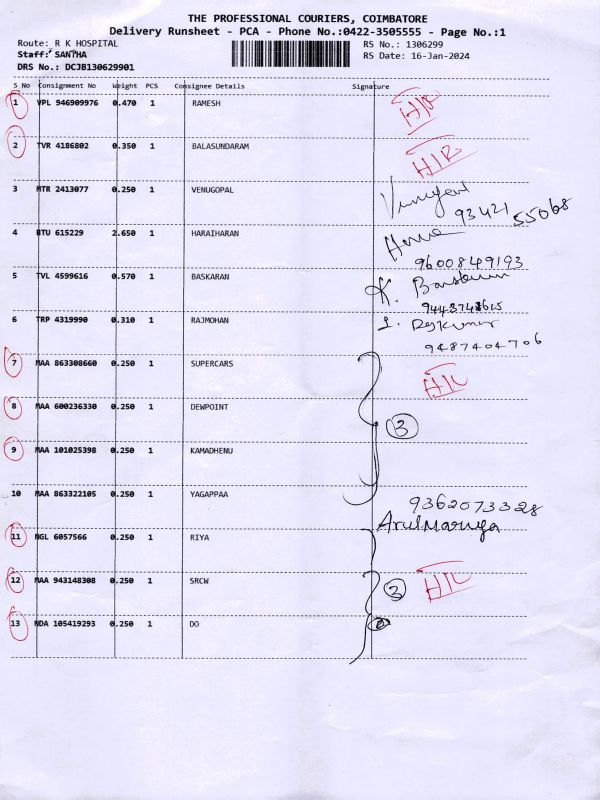 THE PROFESSIONAL COURIERS, COIMBATORE
Delivery Runsheet - PCA - Phone No.:0422-3505555 - Page No.:1
Route: R K HOSPITAL RS No.: 1306299
Staff: SANTHA RS Date: 16-Jan-2024
DRS No.: DCJB130629901
S No Consignment No Weight PCS Consignee Details Signature
1 VPL 946909976 0.470 1 RAMESH
2 TVR 4186802 0.350 1 BALASUNDARAM
3 MTR 2413077 0.250 1 VENUGOPAL
93421 55068
4 BTU 615229 2.650 1 HARAIHARAN
9600849193
5 TVL 4599616 0.570 1 BASKARAN K.
6 TRP 4319990 0.310 1 RAJMOHAN
9487404706
7 MAA 863308660 0.250 1 SUPERCARS
8 MAA 600236330 0.250 1 DEWPOINT 3
9 MAA 101025398 0.250 1 KAMADHENU
10 MAA 863322105 0.250 1 YAGAPPAA 9362073328
11 NGL 6057566 0.250 1 RIYA
12 MAA 943148308 0.250 1 SRCW
13 NDA 105419293 0.250 1 DO